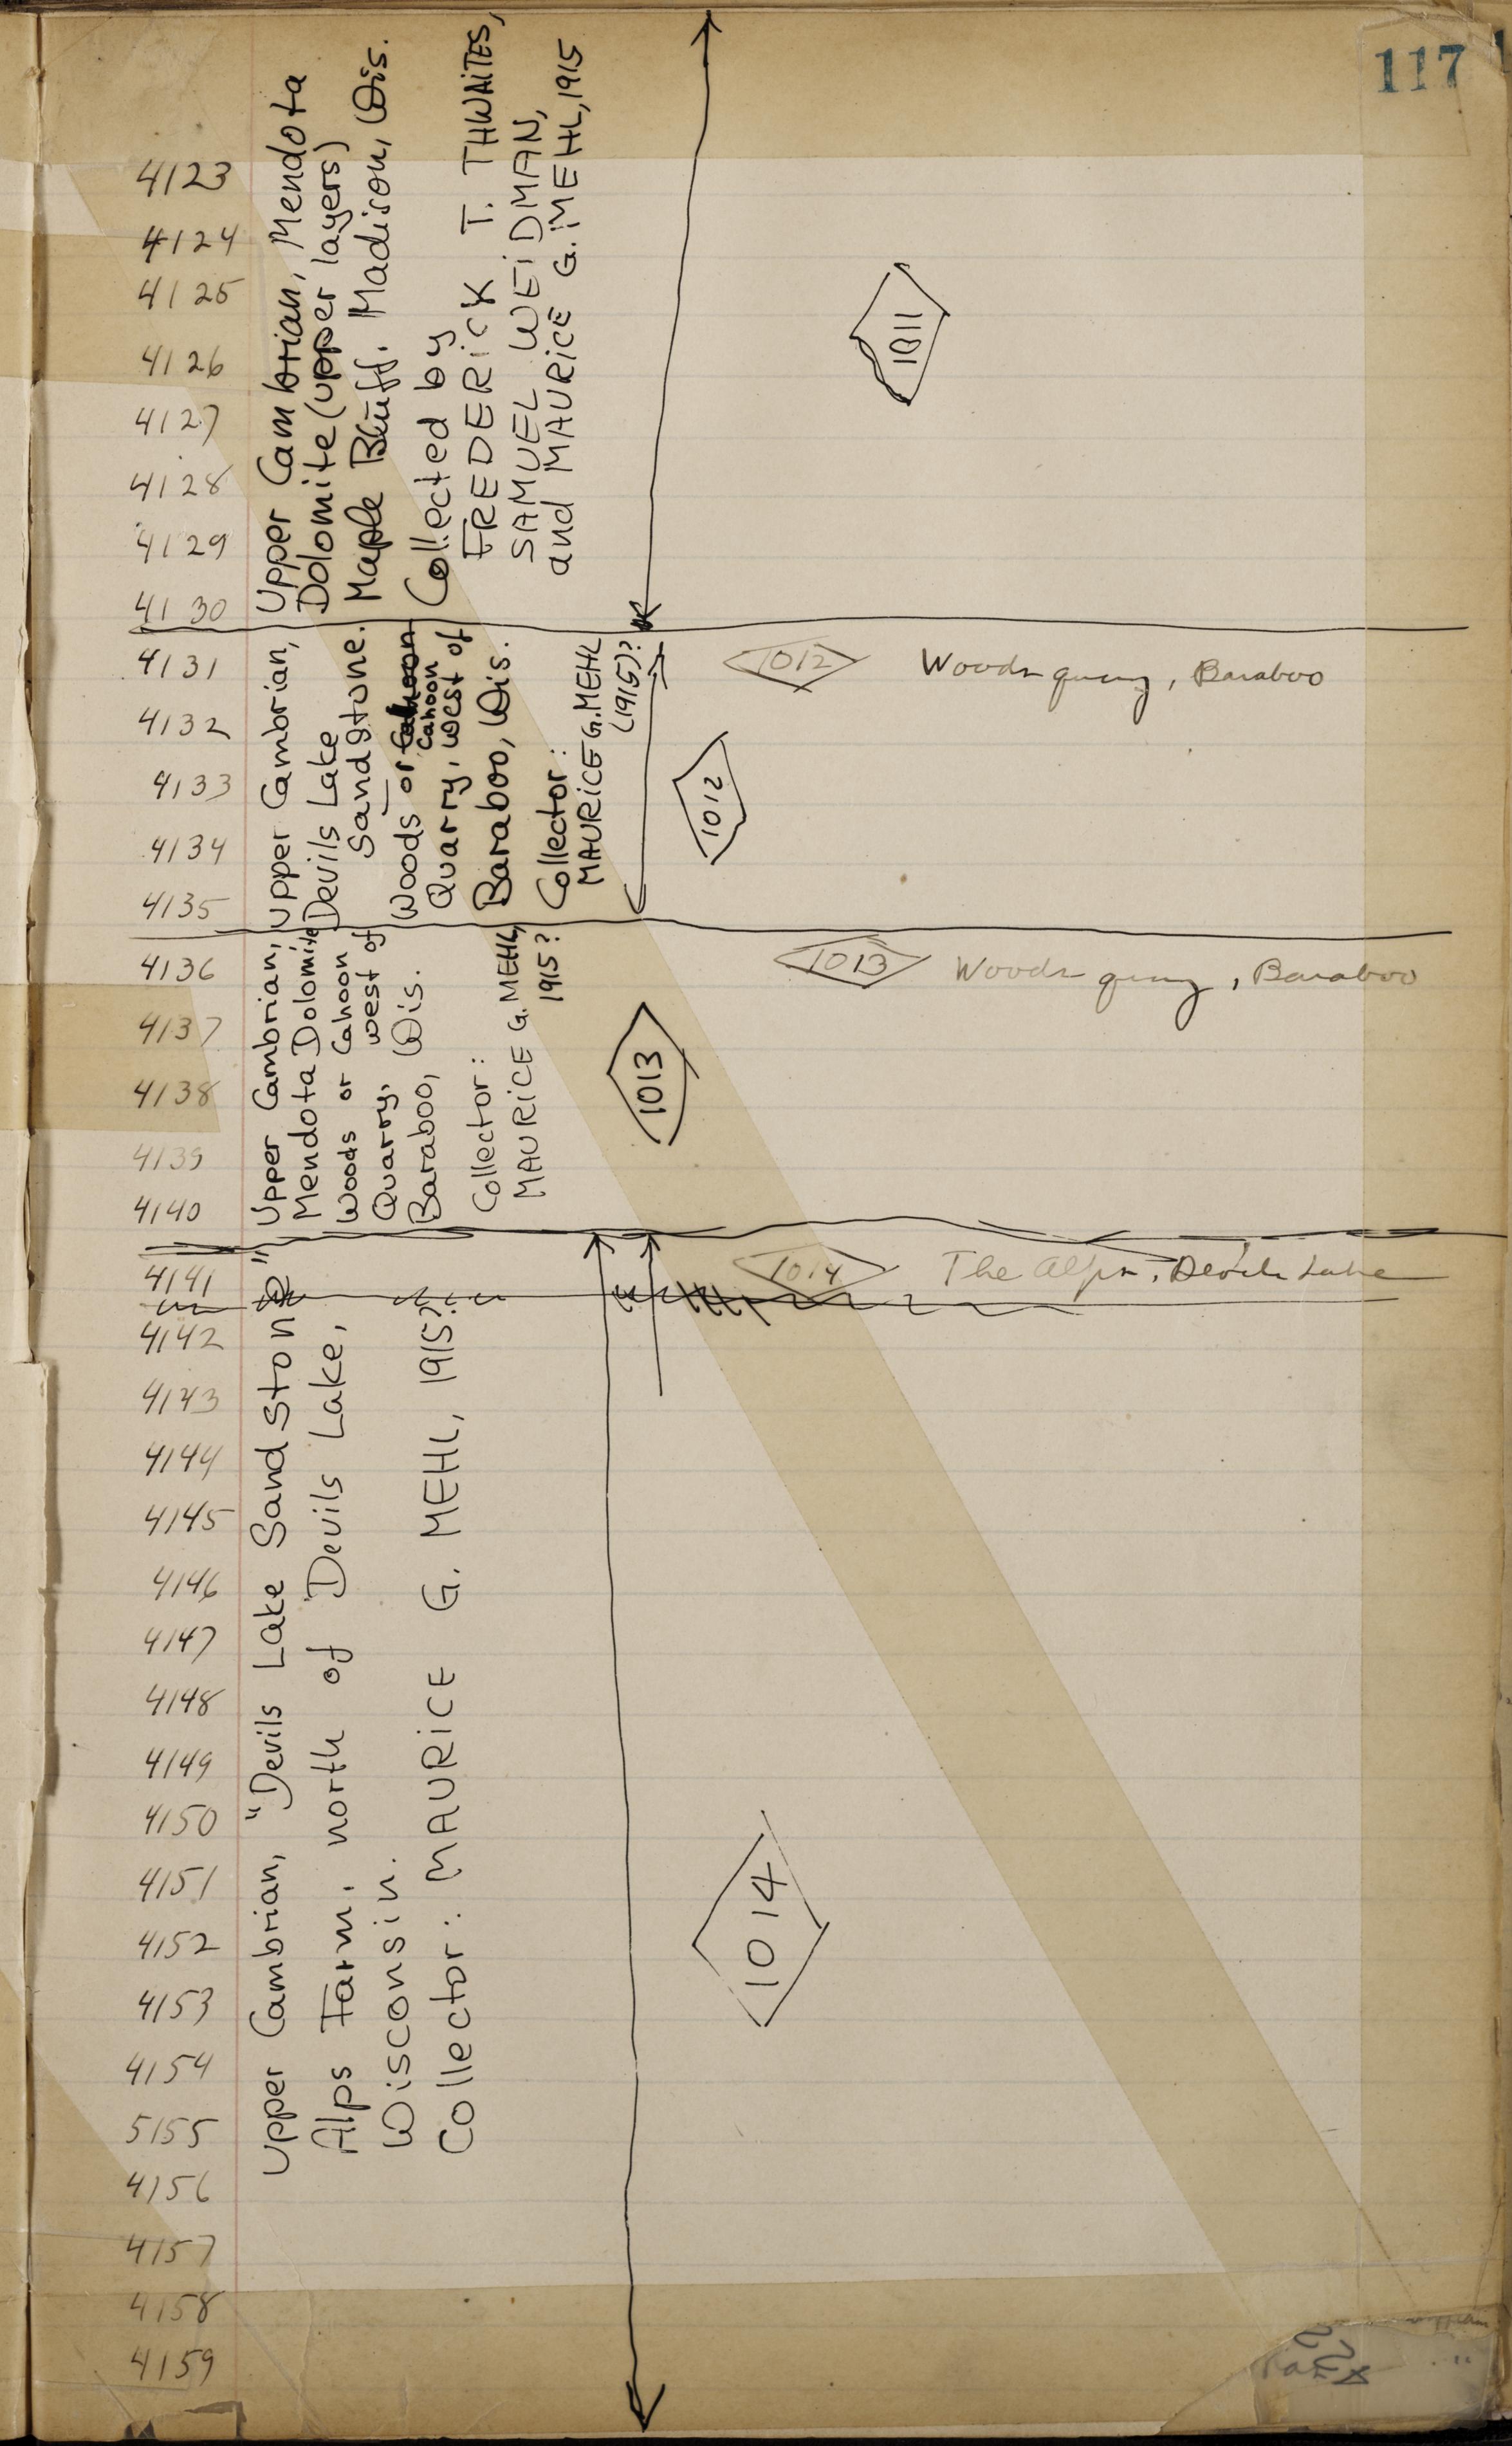 117
4123
4124
4125
4126
4127
4128
4129
4130
Upper Cambrian, Mendota
Dolomite (upper layers)
Maple Bluff. Madison, Wis.
Collected by
FREDERICK T. THWAITES,
SAMUEL WEIDMAN,
and MAURICE G. MEHL, 1915
1011
4131
4132
4133
4134
4135
Upper Cambrian,
Devils Lake
Sandstone.
Woods or Cahoon
Cahoon
Quarry, west of
Baraboo, Wis.
Collector:
MAURICE G. MEHL
(1915)?
1012 Woods quarry, Baraboo
1012
4136
4137
4138
4139
4140
Upper Cambrian,
Mendota Dolomite
Woods or Cahoon
Quarry, west of
Baraboo, Wis.
Collector:
MAURICE G. MEHL,
1915?
1013 Woods quarry, Baraboo
1013
4141
4142
4143
4144
4145
4146
4147
4148
4149
4150
4151
4152
4153
4154
5155
4156
4157
4158
4159
1014 The Alps, Devils Lake
Upper Cambrian, "Devils Lake Sandstone"
Alps Farm, north of Devils Lake,
Wisconsin.
Collector: MAURICE G. MEHL, 1915?
1014